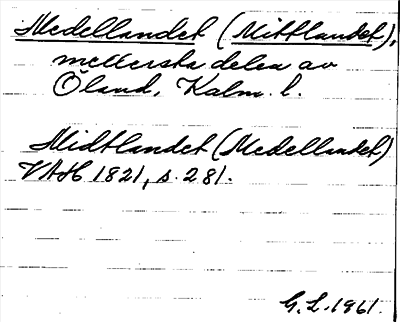 Medellandet (Mittlandet),
mellersta delen av
Öland, Kalm. l.
Midtlandet (Medellandet)
VAH 1821, s. 281.
G. L. 1961.